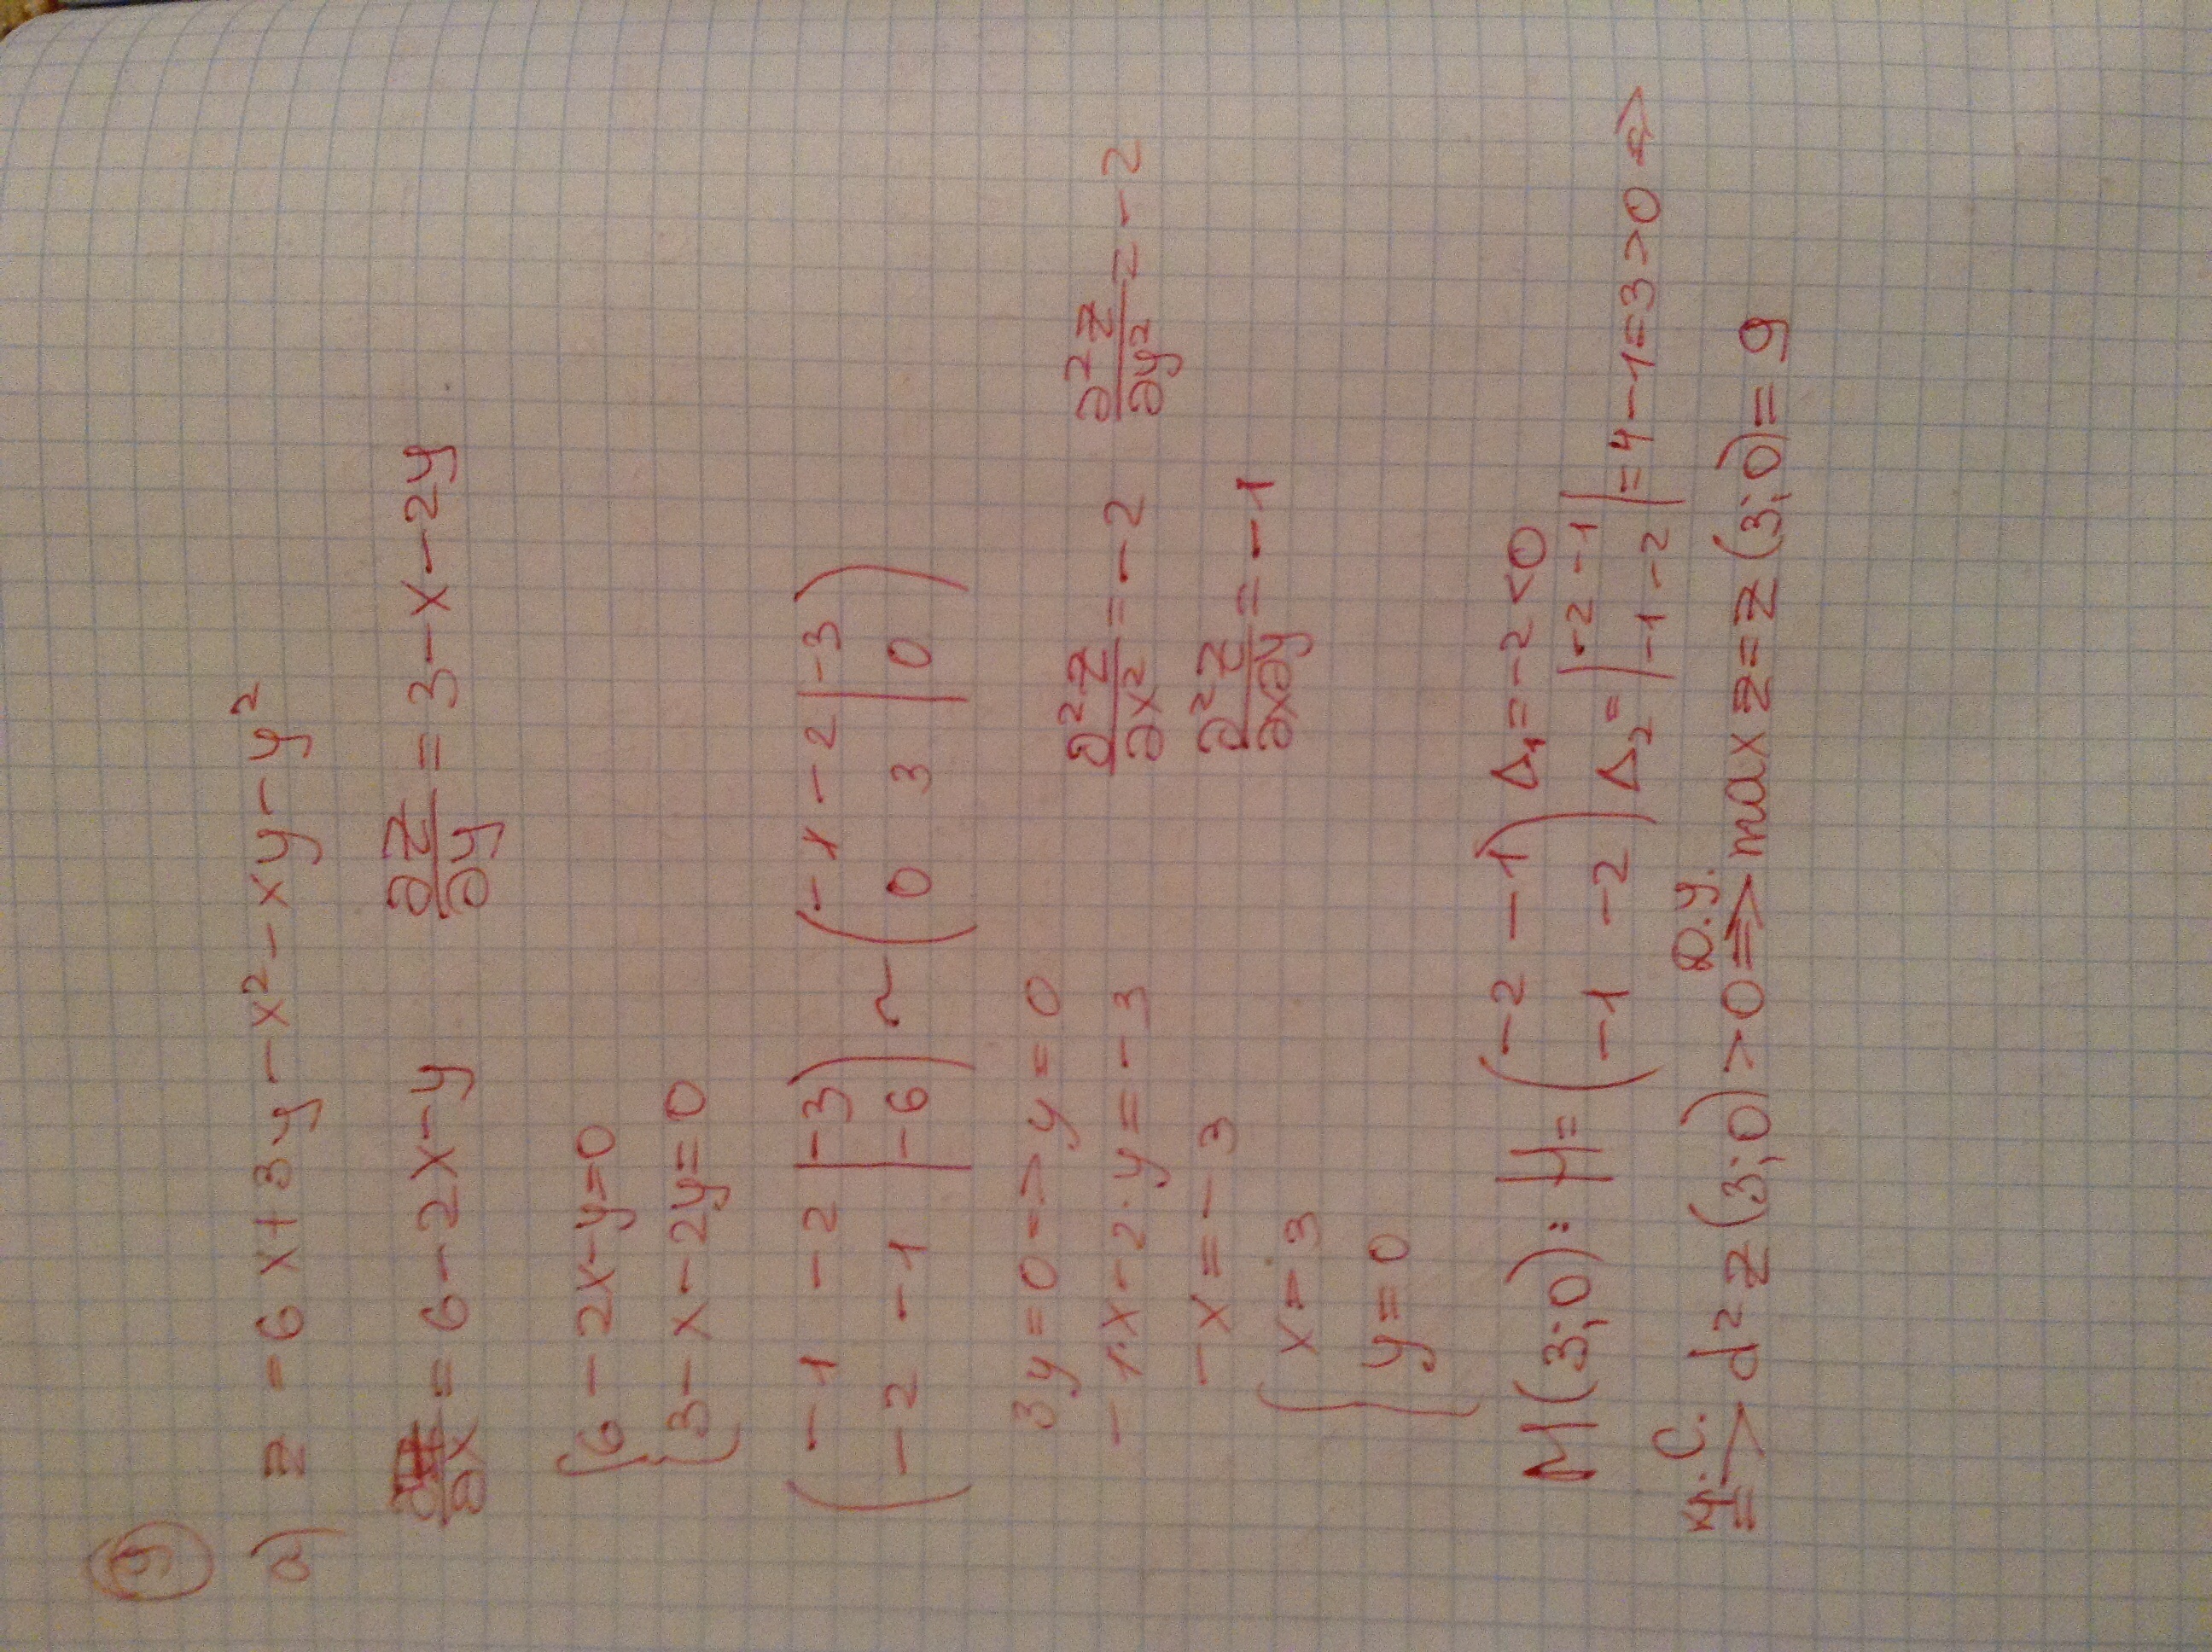 9
a) z = 6x+3y-x²-xy-y²
∂z/∂x = 6-2x-y ∂z/∂y = 3-x-2y
{6-2x-y=0
{3-x-2y=0
(-1 -2 | -3) ~ (-1 -2 | -3)
(-2 -1 | -6) (0 3 | 0)
3y=0 => y=0
-1·x-2·y=-3
-x=-3
{x=3
{y=0
∂²z/∂x²=-2 ∂²z/∂y²=-2
∂²z/∂x∂y=-1
M(3;0): H= (-2 -1) Δ₁=-2<0
(-1 -2) Δ₂= |-2 -1| =4-1=3>0 =>
|-1 -2|
К.С. => d²z(3;0)>0 Д.У. => max z=z(3;0)=9